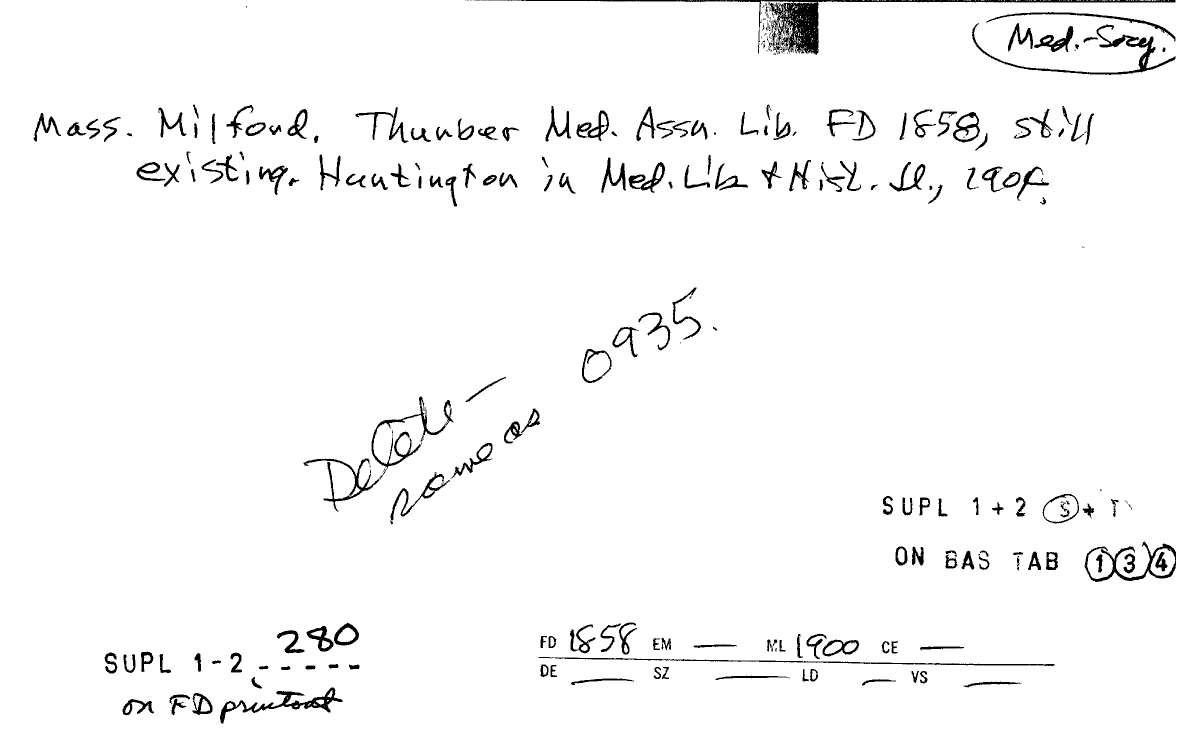 Med.-Socy.
Mass. Milford. Thurber Med. Assn. Lib. FD 1858, still
existing. Huntington in Med. Lib & Hist. Jl., 190
Delete —
same as 0935.
SUPL 1+2 S+
ON BAS TAB 1 3 4
280
SUPL 1-2 - - - - -
on FD printout
FD 1858 EM — ML 1900 CE —
DE — SZ — LD — VS —